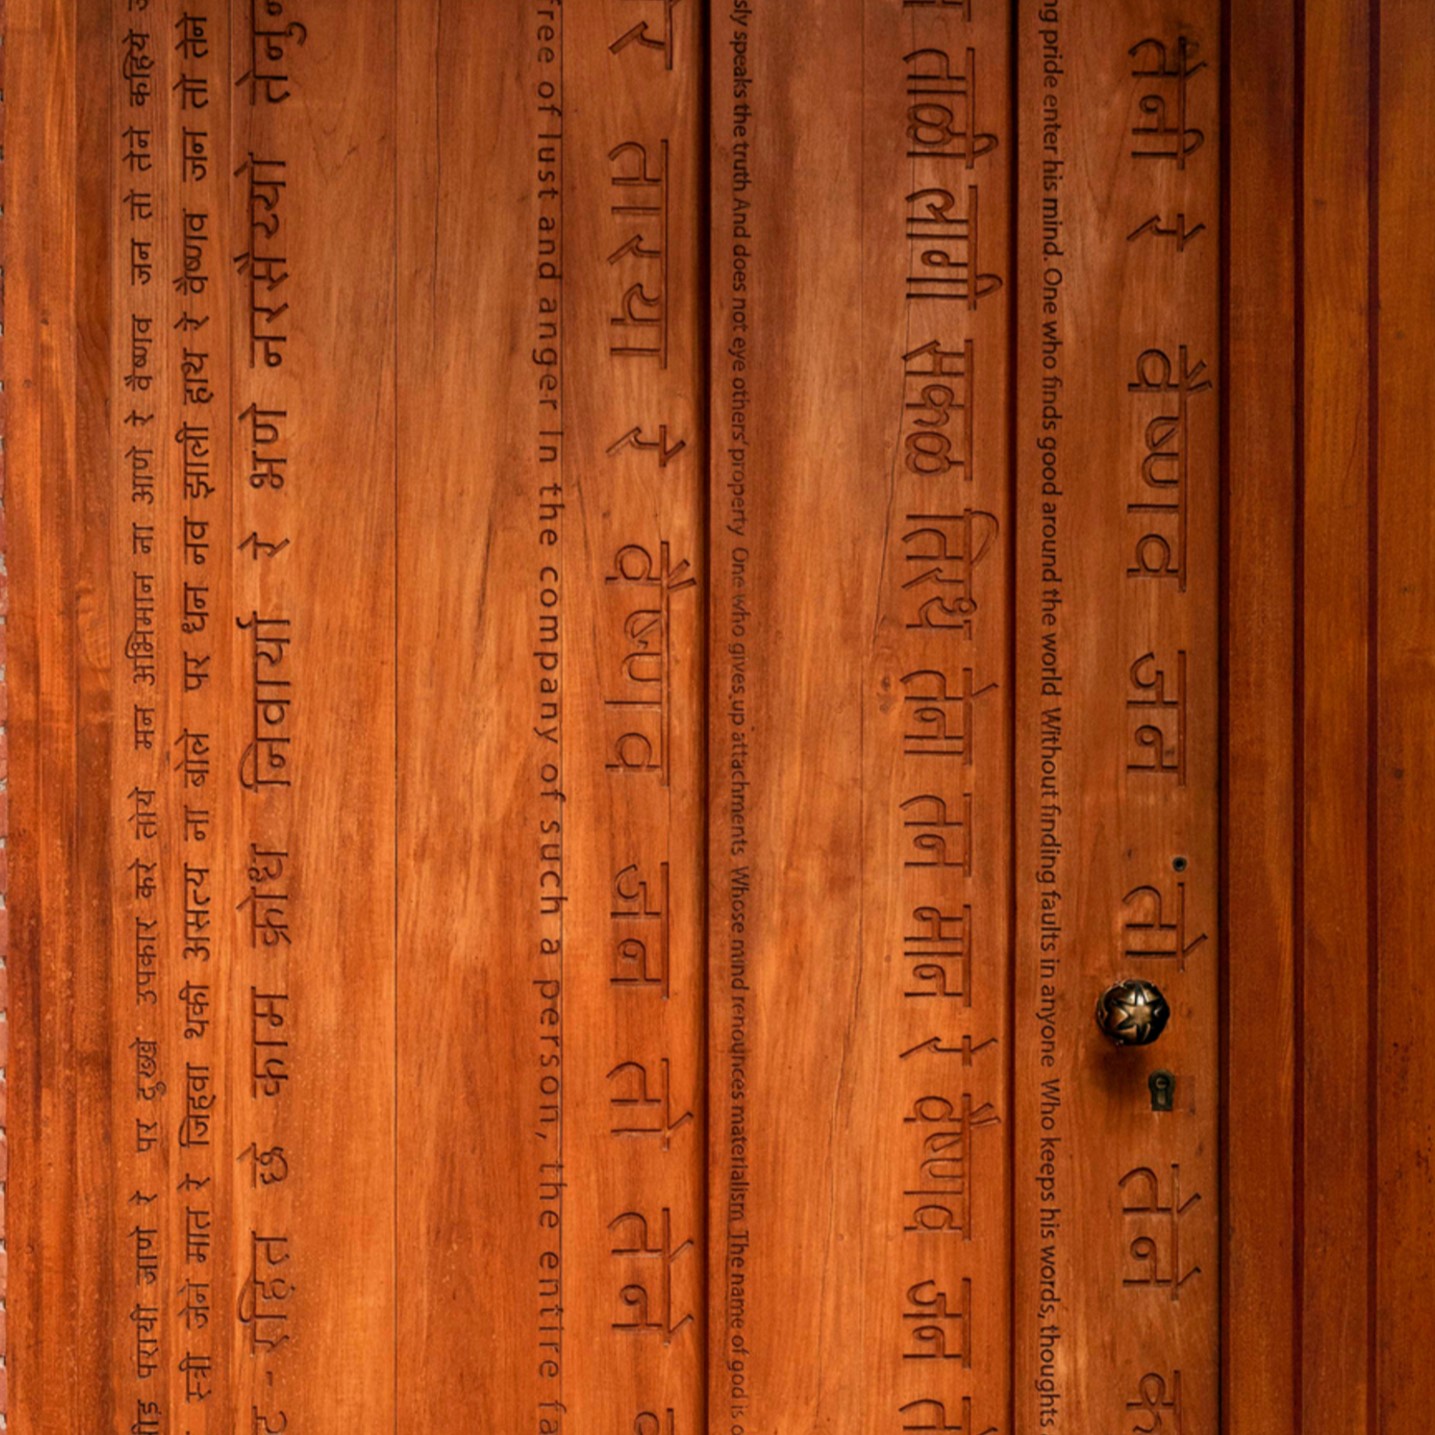 पीड परायी जाणे रे पर दुख्खे उपकार करे तोये मन अभिमान ना आणे रे वैष्णव जन तो तेने कहिये
स्त्री जेने मात रे जिहवा थकी असत्य ना बोले पर धन नव झाली हाथ रे वैष्णव जन तो तेने
- रहित छे काम क्रोध निवार्या रे भणे नरसैय्यो तेनु
free of lust and anger In the company of such a person, the entire fa
र तारया रे वैष्णव जन तो तेने
sly speaks the truth And does not eye others' property One who gives up attachments Whose mind renounces materialism The name of god is
ताळी लागी सकळ तिरथ तेना तन मान रे वैष्णव जन
ng pride enter his mind. One who finds good around the world Without finding faults in anyone Who keeps his words, thoughts
तेनी रे वैष्णव जन तो तेने